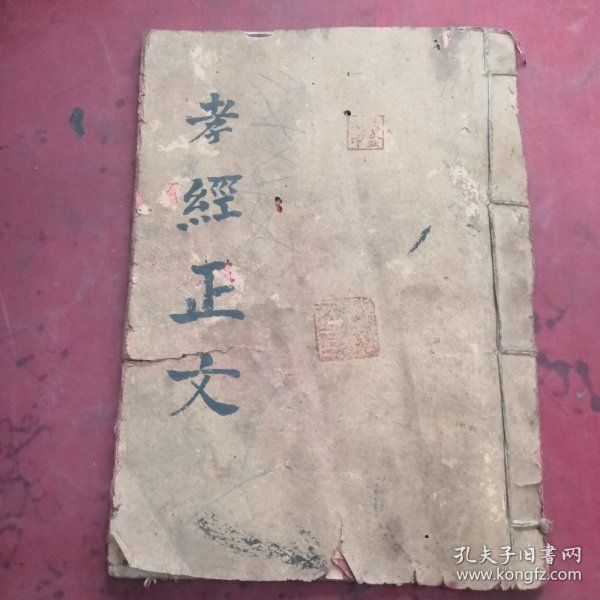 孝經正文
孔夫子旧書网
www.kongfz.com